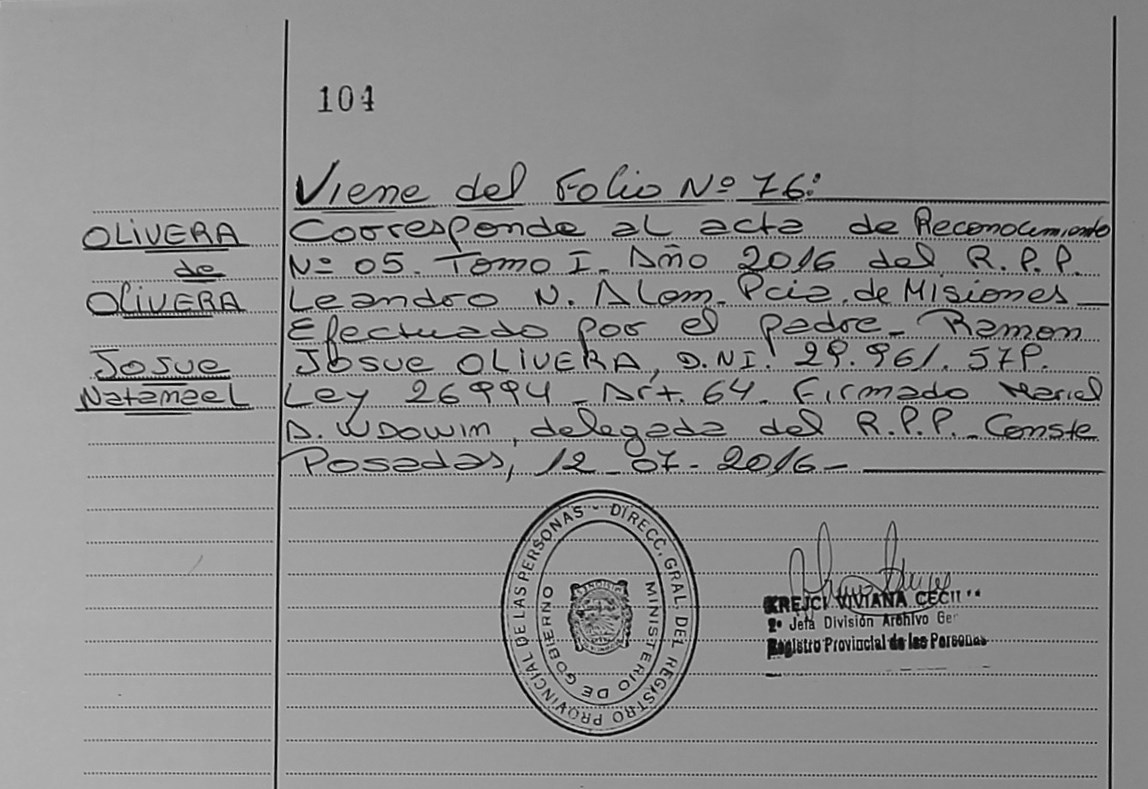 104
Viene del Folio Nº 76:
OLIVERA
de
OLIVERA
Josue
Natanael
Corresponde al acta de Reconocimiento
Nº 05. Tomo I. Año 2016 del R.P.P.
Leandro N. Alem. Pcia. de Misiones
Efectuado por el padre. Ramon
Josue OLIVERA, D.N.I. 29.961.579.
Ley 26994 - Art. 64. Firmado Mariel
D. WDOWIN, delegada del R.P.P. Conste
Posadas, 12-07-2016-
DIRECC. GRAL. DEL REGISTRO PROVINCIAL DE LAS PERSONAS -
MINISTERIO DE GOBIERNO
KREJCI VIVIANA
Jefa División Archivo
Registro Provincial de las Personas